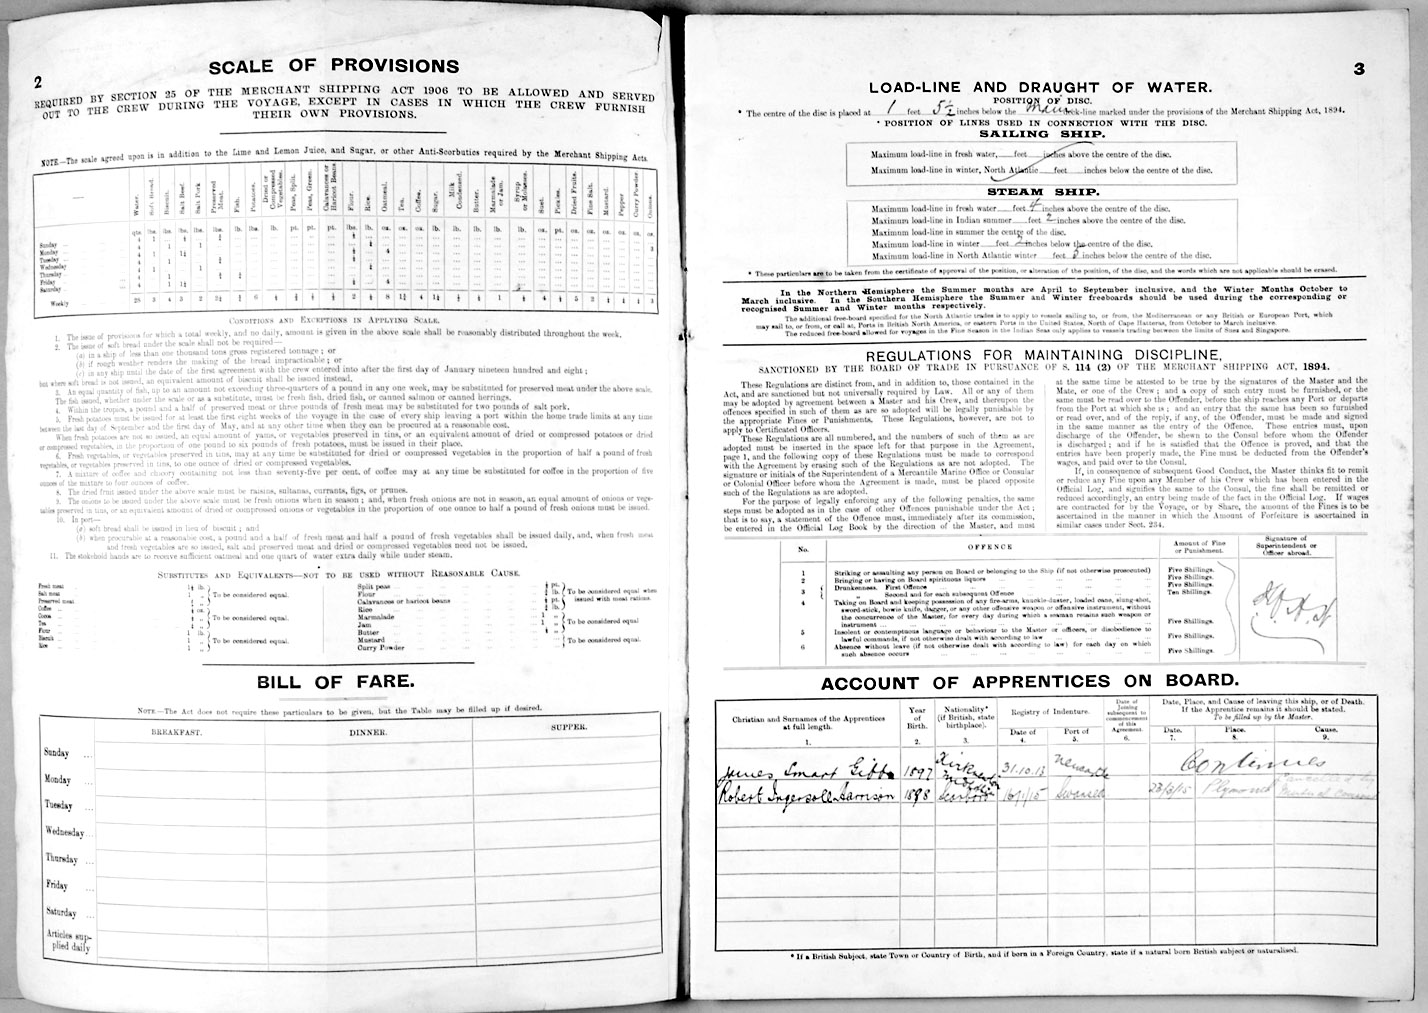 2
SCALE OF PROVISIONS
REQUIRED BY SECTION 25 OF THE MERCHANT SHIPPING ACT 1906 TO BE ALLOWED AND SERVED
OUT TO THE CREW DURING THE VOYAGE, EXCEPT IN CASES IN WHICH THE CREW FURNISH
THEIR OWN PROVISIONS.
NOTE.—The scale agreed upon is in addition to the Lime and Lemon Juice, and Sugar, or other Anti-Scorbutics required by the Merchant Shipping Acts.
Water. Soft Bread. Biscuit. Salt Beef. Salt Pork Preserved Meat. Fish. Potatoes. Dried or Compressed Vegetables. Peas, Split. Peas, Green. Calavances or Haricot Beans Flour. Rice. Oatmeal. Tea. Coffee. Sugar. Milk Condensed. Butter. Marmalade or Jam. Syrup or Molasses. Suet. Pickles. Dried Fruits. Fine Salt. Mustard. Pepper Curry Powder. Onions.
Sunday
Monday
Tuesday
Wednesday
Thursday
Friday
Saturday
Weekly
CONDITIONS AND EXCEPTIONS IN APPLYING SCALE.
1. The issue of provisions for which a total weekly, and no daily, amount is given in the above scale shall be reasonably distributed throughout the week.
2. The issue of soft bread under the scale shall not be required—
(a) in a ship of less than one thousand tons gross registered tonnage; or
(b) if rough weather renders the making of the bread impracticable; or
(c) in any ship until the date of the first agreement with the crew entered into after the first day of January nineteen hundred and eight;
but where soft bread is not issued, an equivalent amount of biscuit shall be issued instead.
3. An equal quantity of fish, up to an amount not exceeding three-quarters of a pound in any one week, may be substituted for preserved meat under the above scale.
The fish issued, whether under the scale or as a substitute, must be fresh fish, dried fish, or canned salmon or canned herrings.
4. Within the tropics, a pound and a half of preserved meat or three pounds of fresh meat may be substituted for two pounds of salt pork.
5. Fresh potatoes must be issued for at least the first eight weeks of the voyage in the case of every ship leaving a port within the home trade limits at any time
between the last day of September and the first day of May, and at any other time when they can be procured at a reasonable cost.
When fresh potatoes are not so issued, an equal amount of yams, or vegetables preserved in tins, or an equivalent amount of dried or compressed potatoes or dried
or compressed vegetables, in the proportion of one pound to six pounds of fresh potatoes, must be issued in their place.
6. Fresh vegetables, or vegetables preserved in tins, may at any time be substituted for dried or compressed vegetables in the proportion of half a pound of fresh
vegetables, or vegetables preserved in tins, to one ounce of dried or compressed vegetables.
7. A mixture of coffee and chicory containing not less than seventy-five per cent. of coffee may at any time be substituted for coffee in the proportion of five
ounces of the mixture to four ounces of coffee.
8. The dried fruit issued under the above scale must be raisins, sultanas, currants, figs, or prunes.
9. The onions to be issued under the above scale must be fresh onions when in season; and, when fresh onions are not in season, an equal amount of onions or vege-
tables preserved in tins, or an equivalent amount of dried or compressed onions or vegetables in the proportion of one ounce to half a pound of fresh onions must be issued.
10. In port—
(a) soft bread shall be issued in lieu of biscuit; and
(b) when procurable at a reasonable cost, a pound and a half of fresh meat and half a pound of fresh vegetables shall be issued daily, and, when fresh meat
and fresh vegetables are so issued, salt and preserved meat and dried or compressed vegetables need not be issued.
11. The stokehold hands are to receive sufficient oatmeal and one quart of water extra daily while under steam.
SUBSTITUTES AND EQUIVALENTS—NOT TO BE USED WITHOUT REASONABLE CAUSE.
Fresh meat
Salt meat
Preserved meat
To be considered equal.
Coffee
Cocoa
Tea
To be considered equal.
Flour
Biscuit
Rice
To be considered equal.
Split peas
Flour
Calavances or haricot beans
Rice
To be considered equal when issued with meat rations.
Marmalade
Jam
Butter
To be considered equal
Mustard
Curry Powder
To be considered equal.
BILL OF FARE.
NOTE—The Act does not require these particulars to be given, but the Table may be filled up if desired.
BREAKFAST. DINNER. SUPPER.
Sunday
Monday
Tuesday
Wednesday
Thursday
Friday
Saturday
Articles sup-
plied daily
3
LOAD-LINE AND DRAUGHT OF WATER.
POSITION OF DISC.
* The centre of the disc is placed at 1 feet 5½ inches below the Main deck-line marked under the provisions of the Merchant Shipping Act, 1894.
* POSITION OF LINES USED IN CONNECTION WITH THE DISC.
SAILING SHIP.
Maximum load-line in fresh water, feet inches above the centre of the disc.
Maximum load-line in winter, North Atlantic feet inches below the centre of the disc.
STEAM SHIP.
Maximum load-line in fresh water feet 4 inches above the centre of the disc.
Maximum load-line in Indian summer feet 2 inches above the centre of the disc.
Maximum load-line in summer the centre of the disc.
Maximum load-line in winter feet 2 inches below the centre of the disc.
Maximum load-line in North Atlantic winter feet inches below the centre of the disc.
* These particulars are to be taken from the certificate of approval of the position, or alteration of the position, of the disc, and the words which are not applicable should be erased.
In the Northern Hemisphere the Summer months are April to September inclusive, and the Winter Months October to
March inclusive. In the Southern Hemisphere the Summer and Winter freeboards should be used during the corresponding or
recognised Summer and Winter months respectively.
The additional free-board specified for the North Atlantic trades is to apply to vessels sailing to, or from, the Mediterranean or any British or European Port, which
may sail to, or from, or call at, Ports in British North America, or eastern Ports in the United States, North of Cape Hatteras, from October to March inclusive.
The reduced free-board allowed for voyages in the Fine Season in the Indian Seas only applies to vessels trading between the limits of Suez and Singapore.
REGULATIONS FOR MAINTAINING DISCIPLINE,
SANCTIONED BY THE BOARD OF TRADE IN PURSUANCE OF S. 114 (2) OF THE MERCHANT SHIPPING ACT, 1894.
These Regulations are distinct from, and in addition to, those contained in the
Act, and are sanctioned but not universally required by Law. All or any of them
may be adopted by agreement between a Master and his Crew, and thereupon the
offences specified in such of them as are so adopted will be legally punishable by
the appropriate Fines or Punishments. These Regulations, however, are not to
apply to Certificated Officers.
These Regulations are all numbered, and the numbers of such of them as are
adopted must be inserted in the space left for that purpose in the Agreement,
page 1, and the following copy of these Regulations must be made to correspond
with the Agreement by erasing such of the Regulations as are not adopted. The
signature or initials of the Superintendent of a Mercantile Marine Office or Consular
or Colonial Officer before whom the Agreement is made, must be placed opposite
such of the Regulations as are adopted.
For the purpose of legally enforcing any of the following penalties, the same
steps must be adopted as in the case of other Offences punishable under the Act;
that is to say, a statement of the Offence must, immediately after its commission,
be entered in the Official Log Book by the direction of the Master, and must
at the same time be attested to be true by the signatures of the Master and the
Mate, or one of the Crew; and a copy of such entry must be furnished, or the
same must be read over to the Offender, before the ship reaches any Port or departs
from the Port at which she is; and an entry that the same has been so furnished
or read over, and of the reply, if any, of the Offender, must be made and signed
in the same manner as the entry of the Offence. These entries must, upon
discharge of the Offender, be shewn to the Consul before whom the Offender
is discharged; and if he is satisfied that the Offence is proved, and that the
entries have been properly made, the Fine must be deducted from the Offender's
wages, and paid over to the Consul.
If, in consequence of subsequent Good Conduct, the Master thinks fit to remit
or reduce any Fine upon any Member of his Crew which has been entered in the
Official Log, and signifies the same to the Consul, the fine shall be remitted or
reduced accordingly, an entry being made of the fact in the Official Log. If wages
are contracted for by the Voyage, or by Share, the amount of the Fines is to be
ascertained in the manner in which the Amount of Forfeiture is ascertained in
similar cases under Sect. 234.
No. OFFENCE Amount of Fine or Punishment. Signature of Superintendent or Officer abroad.
1 Striking or assaulting any person on Board or belonging to the Ship (if not otherwise prosecuted) Five Shillings.
2 Bringing or having on Board spirituous liquors Five Shillings.
3 Drunkenness. First Offence Five Shillings.
Second and for each subsequent Offence Ten Shillings.
4 Taking on Board and keeping possession of any fire-arms, knuckle-duster, loaded cane, slung-shot,
sword-stick, bowie knife, dagger, or any other offensive weapon or offensive instrument, without
the concurrence of the Master, for every day during which a seaman retains such weapon or
instrument Five Shillings.
5 Insolent or contemptuous language or behaviour to the Master or officers, or disobedience to
lawful commands, if not otherwise dealt with according to law Five Shillings.
6 Absence without leave (if not otherwise dealt with according to law) for each day on which
such absence occurs Five Shillings.
ACCOUNT OF APPRENTICES ON BOARD.
Christian and Surnames of the Apprentices at full length. 1.
Year of Birth. 2.
Nationality* (if British, state birthplace). 3.
Registry of Indenture.
Date of 4.
Port of 5.
Date of Joining subsequent to commencement of this Agreement. 6.
Date, Place, and Cause of leaving this ship, or of Death.
If the Apprentice remains it should be stated.
To be filled up by the Master.
Date. 7.
Place. 8.
Cause. 9.
James Smart Gibb 1897 31.10.13 Newcastle Continues
Robert Ingersoll Harrison 1898 16/1/15 Swansea 23/3/15 Plymouth Cancelled by mutual consent
* If a British Subject, state Town or Country of Birth, and if born in a Foreign Country, state if a natural born British subject or naturalised.